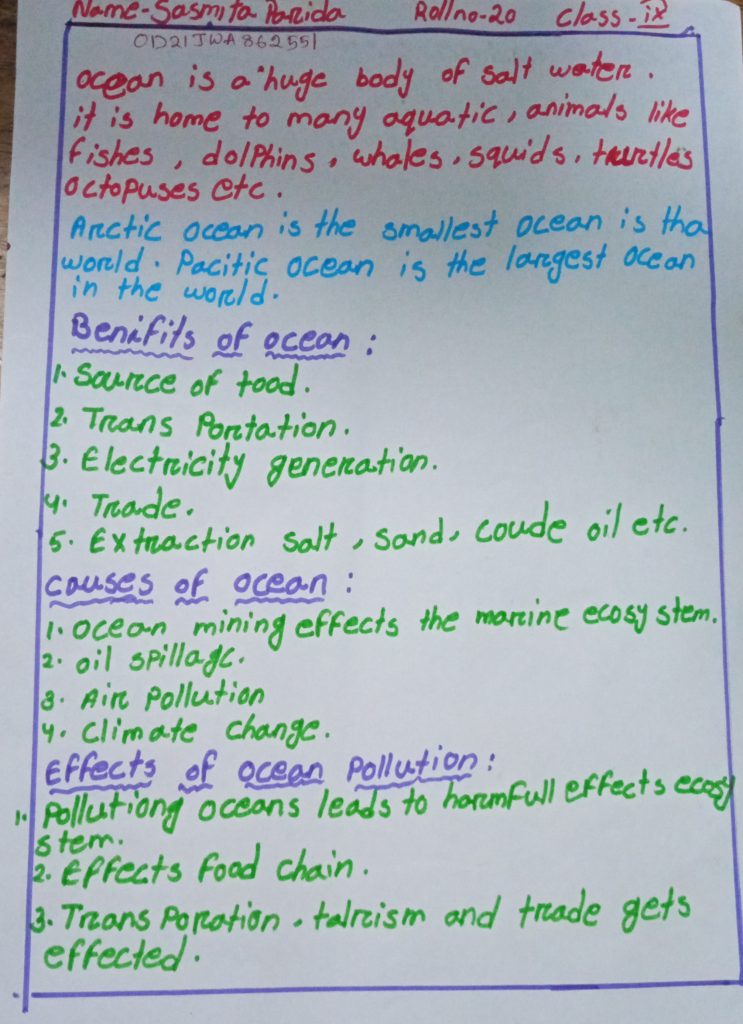 Name-Sasmita Parida Rollno-20 Class-ix
OD21JWA862551
ocean is a huge body of salt water.
it is home to many aquatic, animals like
fishes, dolphins, whales, squids, taurtles
octopuses etc.
Arctic ocean is the smallest ocean is tha
world. Pacitic ocean is the largest ocean
in the world.
Benifits of ocean:
1. Source of tood.
2. Trans Portation.
3. Electricity generation.
4. Trade.
5. Extraction salt, sand, coude oil etc.
causes of ocean:
1. ocean mining effects the marine ecosy stem.
2. oil spillage.
3. Air pollution
4. Climate change.
Effects of ocean pollution:
1. Pollutiong oceans leads to harmfull effects ecosy
stem.
2. Effects food chain.
3. Trans Poration, talrism and trade gets
effected.